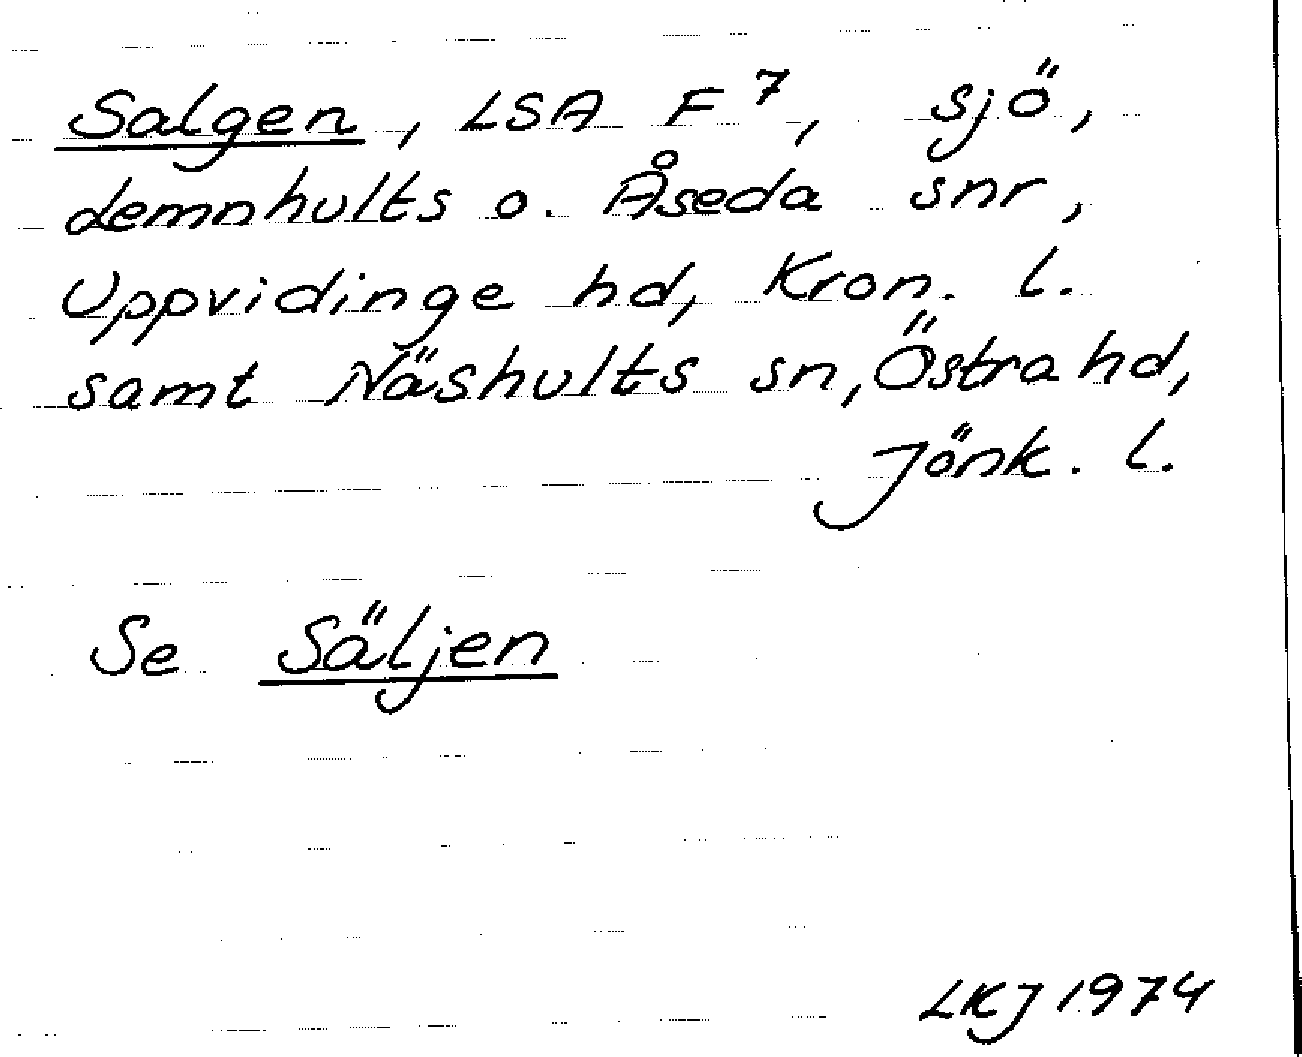 Salgen, LSA F⁷, sjö,
Lemnhults o. Åseda snr,
Uppvidinge hd, Kron. l.
samt Näshults sn, Östra hd,
Jönk. l.
Se Säljen
LKJ 1974